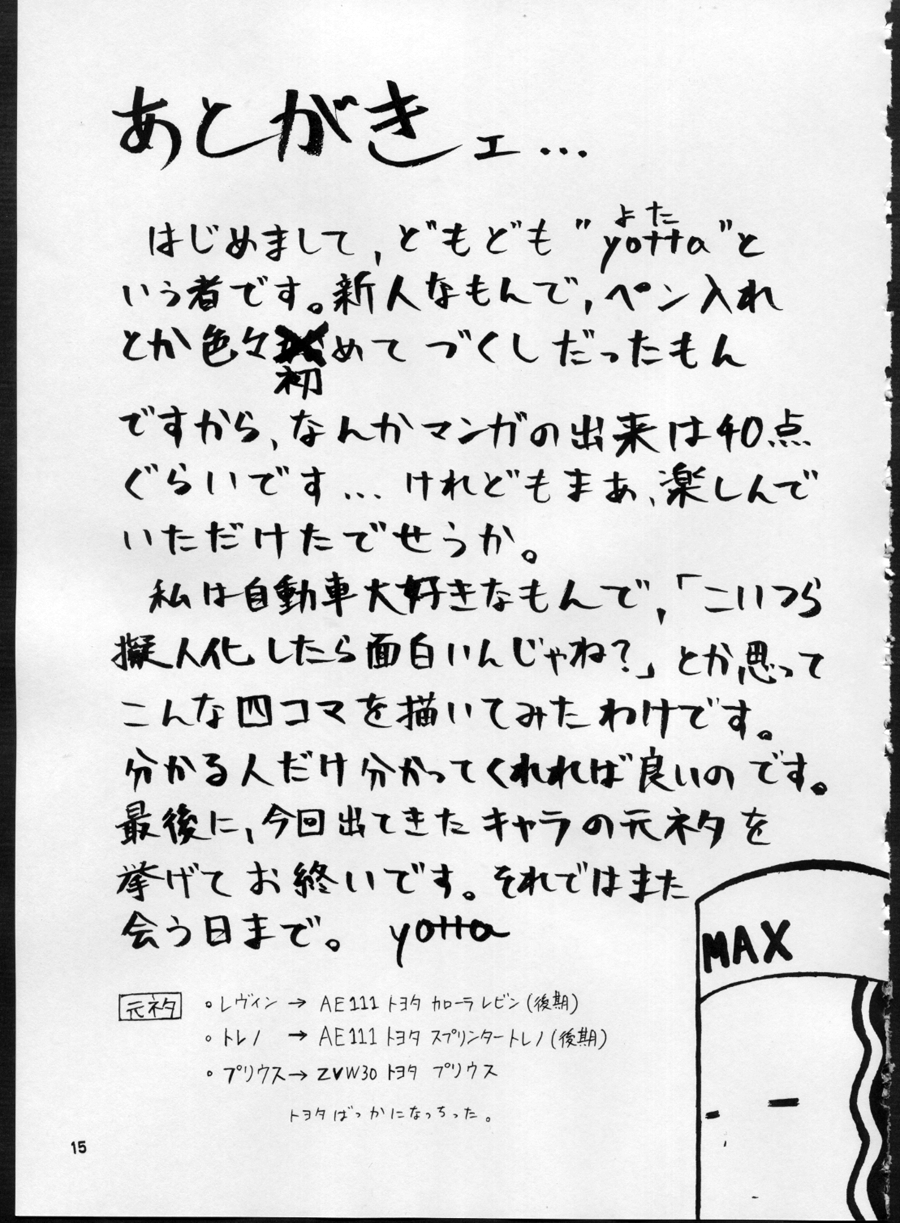 あとがきェ…
はじめまして、どもども"yotta"と
よた
いう者です。新人なもんで、ペン入れ
とか色々初めてづくしだったもん
ですから、なんかマンガの出来は40点
ぐらいです…けれどもまあ、楽しんで
いただけたでせうか。
私は自動車大好きなもんで、「こいつら
擬人化したら面白いんじゃね?」とか思って
こんな四コマを描いてみたわけです。
分かる人だけ分かってくれれば良いのです。
最後に、今回出てきたキャラの元ネタを
挙げてお終いです。それではまた
会う日まで。 yotta
元ネタ
○レヴィン→AE111 トヨタ カローラレビン(後期)
○トレノ→AE111 トヨタ スプリンタートレノ(後期)
○プリウス→ZVW30 トヨタ プリウス
トヨタばっかになっちった。
MAX
15